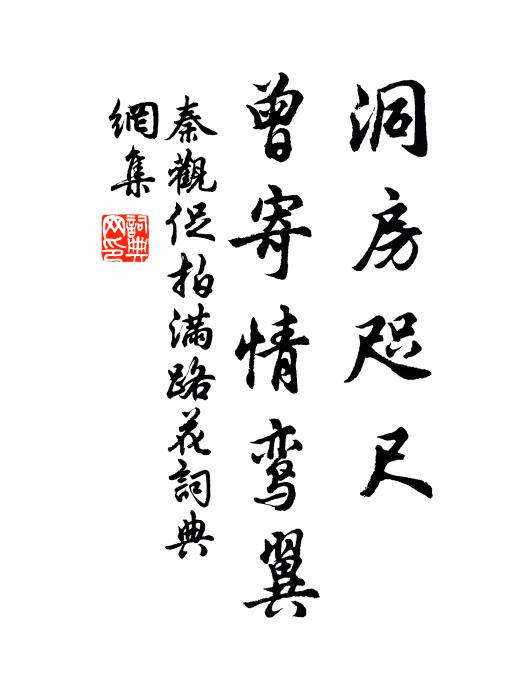 洞房咫尺
曾寄情鸾翼
秦觀促拍滿路花詞典
網集
詞典
网印